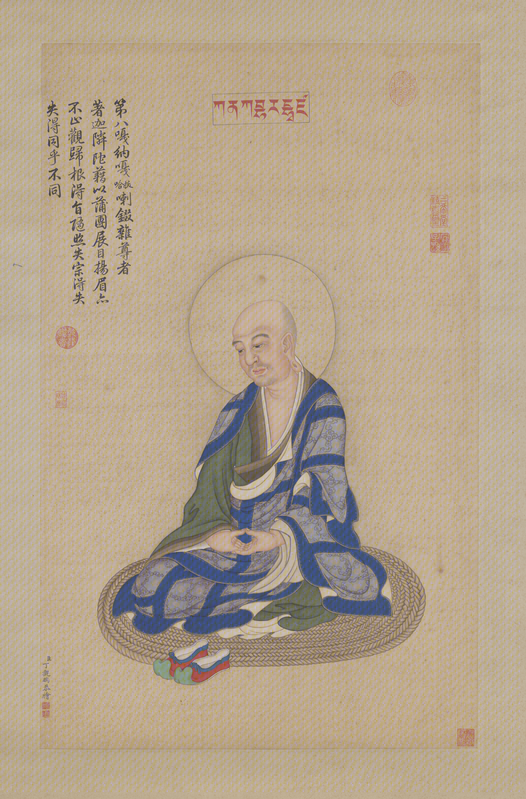 第八嘎納嘎拔哈喇錣雜尊者
著迦隣陀藉以蒲團展目揚眉亦
不止觀歸根得旨隨照失宗得失
失得同乎不同
臣丁觀鵬恭繪